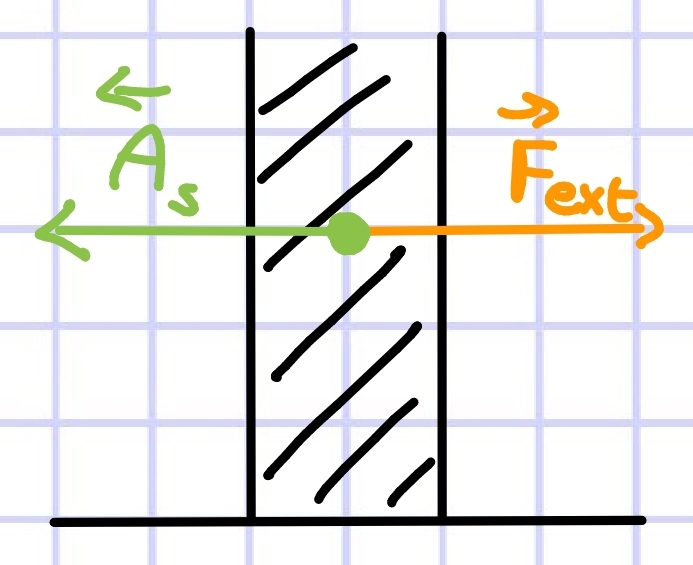 A_s
F_ext